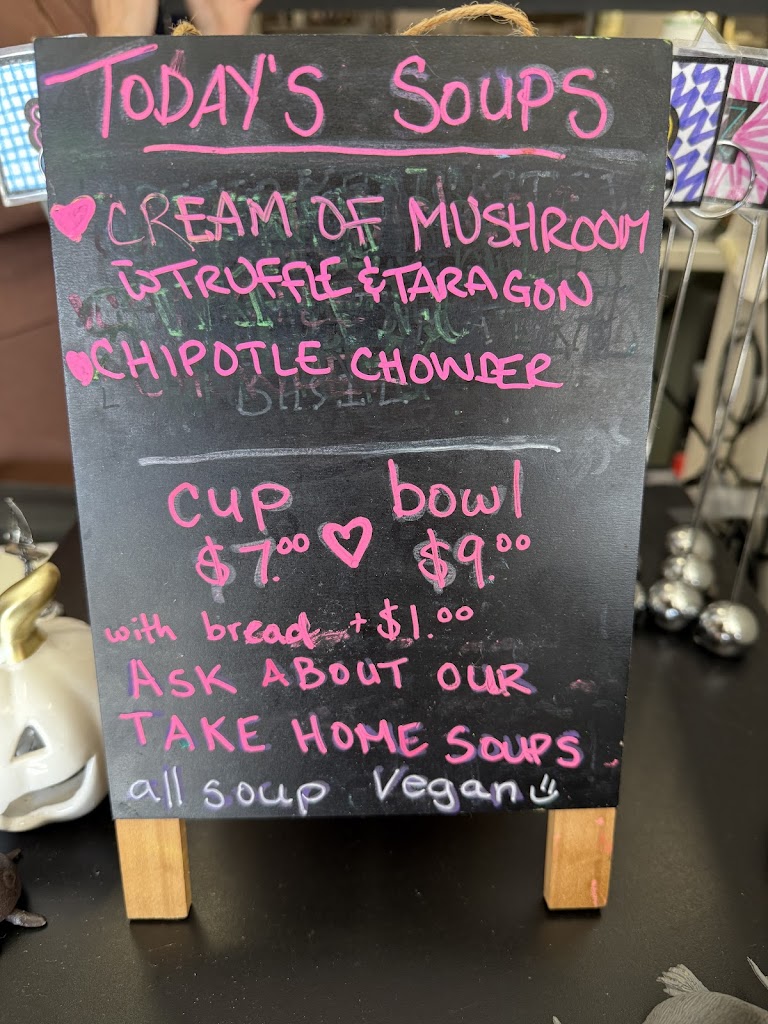 TODAY'S SOUPS
♥ CREAM OF MUSHROOM
w̄ TRUFFLE & TARAGON
♥ CHIPOTLE CHOWDER
cup ♥ bowl
$7.00 $9.00
with bread + $1.00
ASK ABOUT OUR
TAKE HOME SOUPS
all soup Vegan